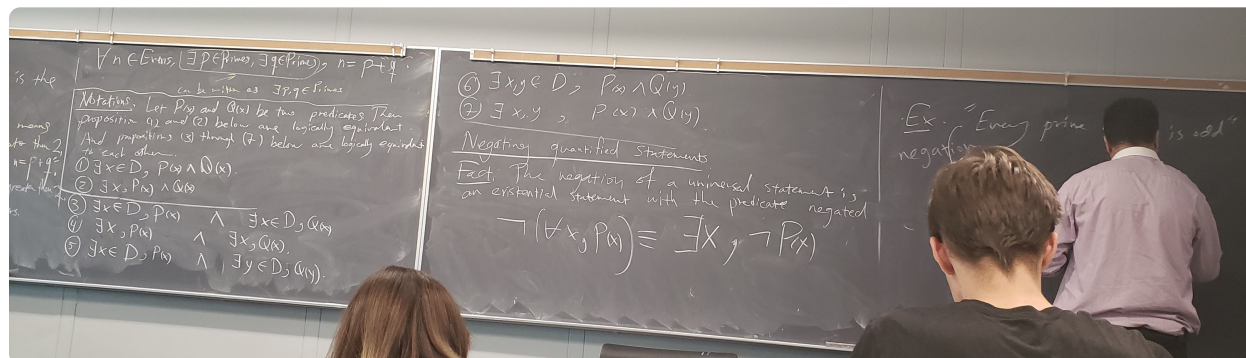 is the
means
than 2,
n = p+q?
∀ n ∈ Evens, ∃ p ∈ Primes, ∃ q ∈ Primes, n = p+q.
can be written as ∃ p, q ∈ Primes
Notations. Let P(x) and Q(x) be two predicates. Then
proposition (1) and (2) below are logically equivalent.
And propositions (3) through (7) below are logically equivalent
to each other.
① ∃x∈D, P(x) ∧ Q(x).
② ∃x, P(x) ∧ Q(x)
③ ∃x∈D, P(x) ∧ ∃x∈D, Q(x)
④ ∃x, P(x) ∧ ∃x, Q(x).
⑤ ∃x∈D, P(x) ∧ ∃y∈D, Q(y).
⑥ ∃x,y∈D, P(x) ∧ Q(y)
⑦ ∃x,y, P(x) ∧ Q(y).
Negating quantified statements
Fact. The negation of a universal statement is
an existential statement with the predicate negated
¬(∀x, P(x)) ≡ ∃x, ¬P(x)
Ex. "Every prime is odd"
negation